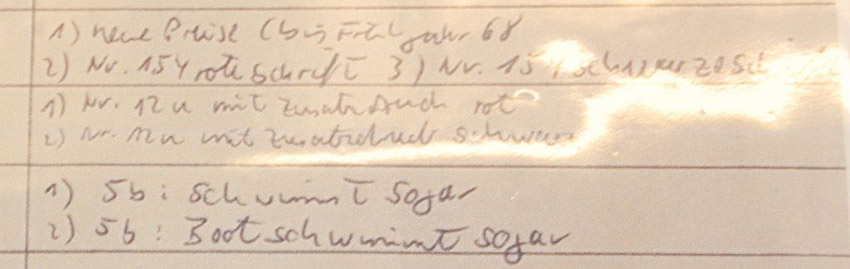 1) neue Preise (bis Frühjahr 68
2) Nr. 154 rote Schrift 3) Nr. 154 schwarze Schrift
1) Nr. 12u mit Zusatzdruck rot
2) Nr. 12u mit Zusatzdruck schwarz
1) 5b: schwimmt sogar
2) 5b: Boot schwimmt sogar